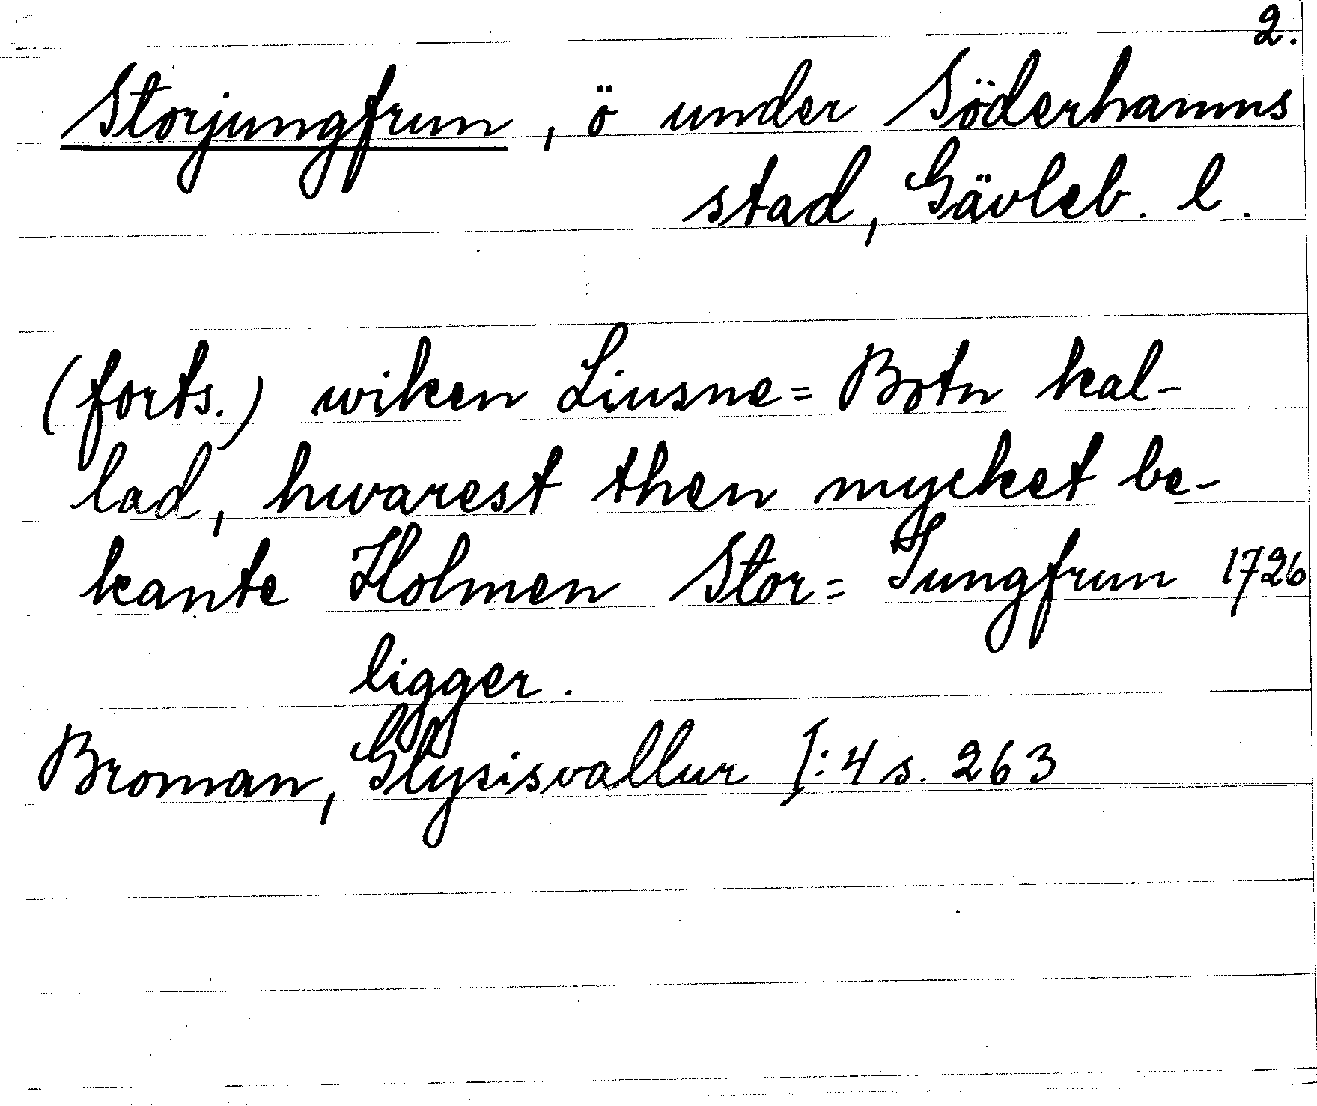 2.
Storjungfrun, ö under Söderhamns
stad, Gävleb. l.
(forts.) wiken Liusne=Botn kal-
lad, hwarest then mycket be-
kante Holmen Stor=Jungfrun 1726
ligger.
Broman, Glysisvallur I:4 s. 263